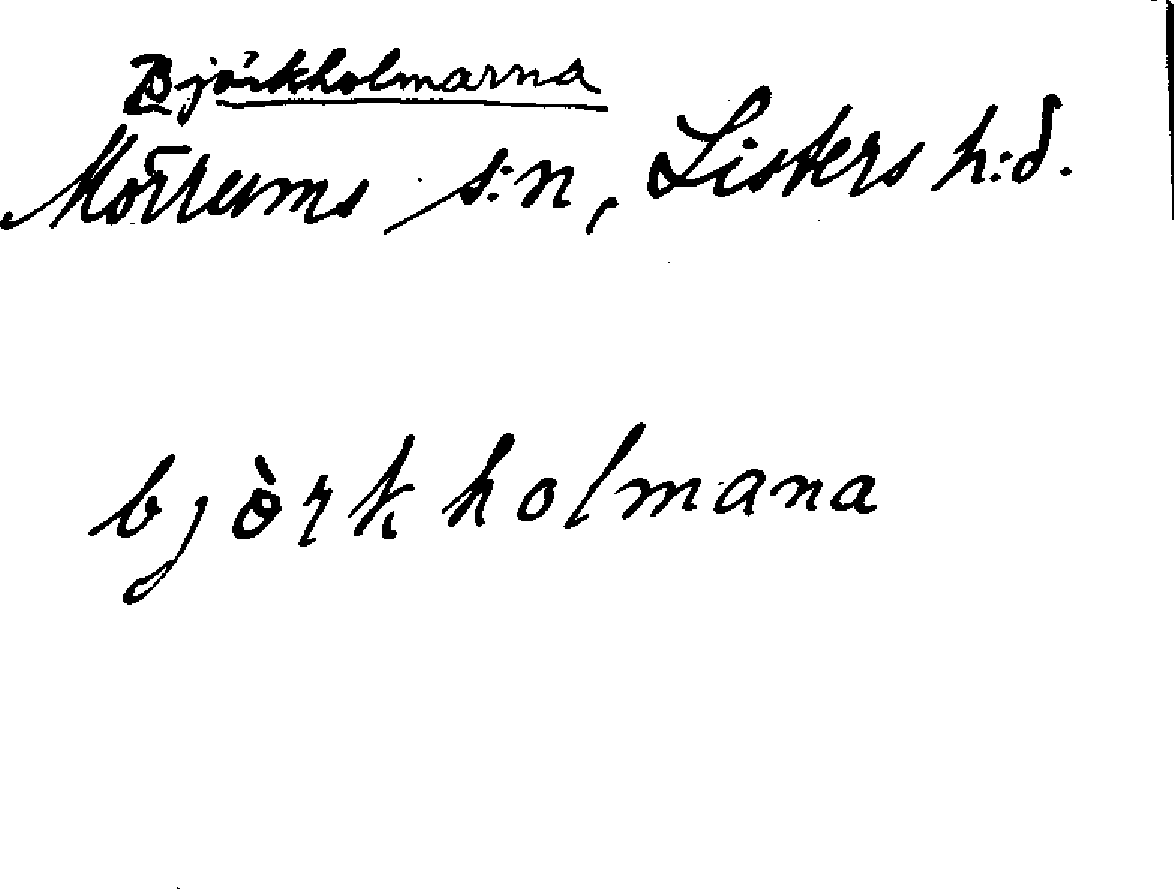 Björkholmarna
Mörrums s:n, Listers h:d.
bjòrkholmana